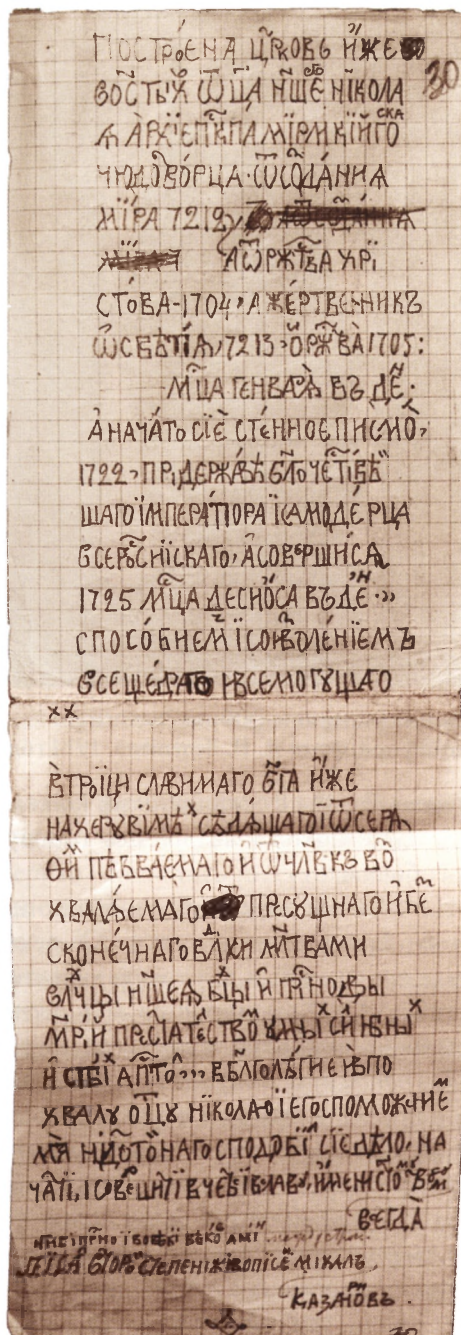 ПОСТРОЕНА ЦР҃КОВЬ И҆ЖЕ ВО
30
ВОСТЫ́Х ѾЦА Н҃ШЕ НІКОЛА
Ѧ А҆РХЇЕП҃КПА МЇРЛИКІЙСКАГО
ЧЮДОВО́РЦА. ѾСОДА́НИѦ
МІ́РА 7212
А ѾРЖ҃ТВА ХРЇ
СТО́ВА-1704, А ЖЕ́РТВЕННИКЪ
ѾСВѢТІ́Ѧ, 7213, ѾРЖ҃ВА 1705:
М҃ЦА ГЕНВАРѦ̀ ВЪ ДЕ҃.
А҆ НАЧА́ТО СІЀ СТЕ́ННОЕ ПИСМО̀,
1722, ПРИ ДЕРЖА́ВѢ БЛ҃ОЧЕТІВѢ
ШАГО ІМПЕРА́ТОРА ЇСАМОДЕ́РЦА
ВСЕРОСИЇСКАГО, А҆ СОВЕРШИ́СѦ
1725 М҃ЦА ДЕ ВЪ ДЕ҃Н
СПОСО́БИЕМ ЇСОИЗВОЛЕ́НІЕМЪ
ВСЕЩЕ́ДРАГО И ВСЕМОГУЩАГО
ХХ
В̀ТРОЇЦИ СЛА́ВИМАГО Б҃ГА И҆ЖЕ
НАХЕРУВЇМѢХ СѢДѦ́ЩАГО Ї ѾСЕРА
ѲИ҆ ПѢВА́ЕМАГО И҆ ѾЧЛ҃ВКЪ ВО
ХВАЛѦ́ЕМАГО ПРЕСУЩНАГО И҆ БЕ
СКОНЕ́ЧНАГО ВЛ҃КИ М҃ЛТВАМИ
ВЛЧ҃ЦЫ Н҃ШЕѦ Б҃ЦЫ И҆ ПРНОДВ҃Ы
М҃РІИ ПРЕ́СТАТЕСТВО УМНЫХ СИ́ЛНЫХ
И҆ СТ҃Ы́Х АП҃ТО В БЛ҃ГОЛѢ́ПИЕ И ПО
ХВАЛУ ОТЦ҃У НІКОЛАЮ Ї ЕГО СПОМОЖЕ́НИЕМ
МѦ НИДОСТО́НАГО СПОДОБИ СЇЕ ДѢЛО, НА
ЧА́ТИ, І СОВЕШИ́ТИ В ЧЕ́СТЬ Ї ВЛАВУ, И҆МЕНИ СТ҃О
ВСЕГДА̀
НН҃Ѣ І ПРНО І ВОВѢКИ ВѢКО АМИ́Н
ЕГО́РЪ СТЕПЕНІ ЖІВОПИСЕ МІХАЛЪ
КАЗАРИНОВЪ.